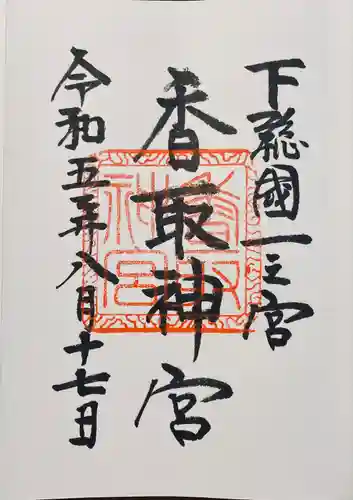 下総國一之宮
香取神宮
令和五年八月十七日
香取神宮